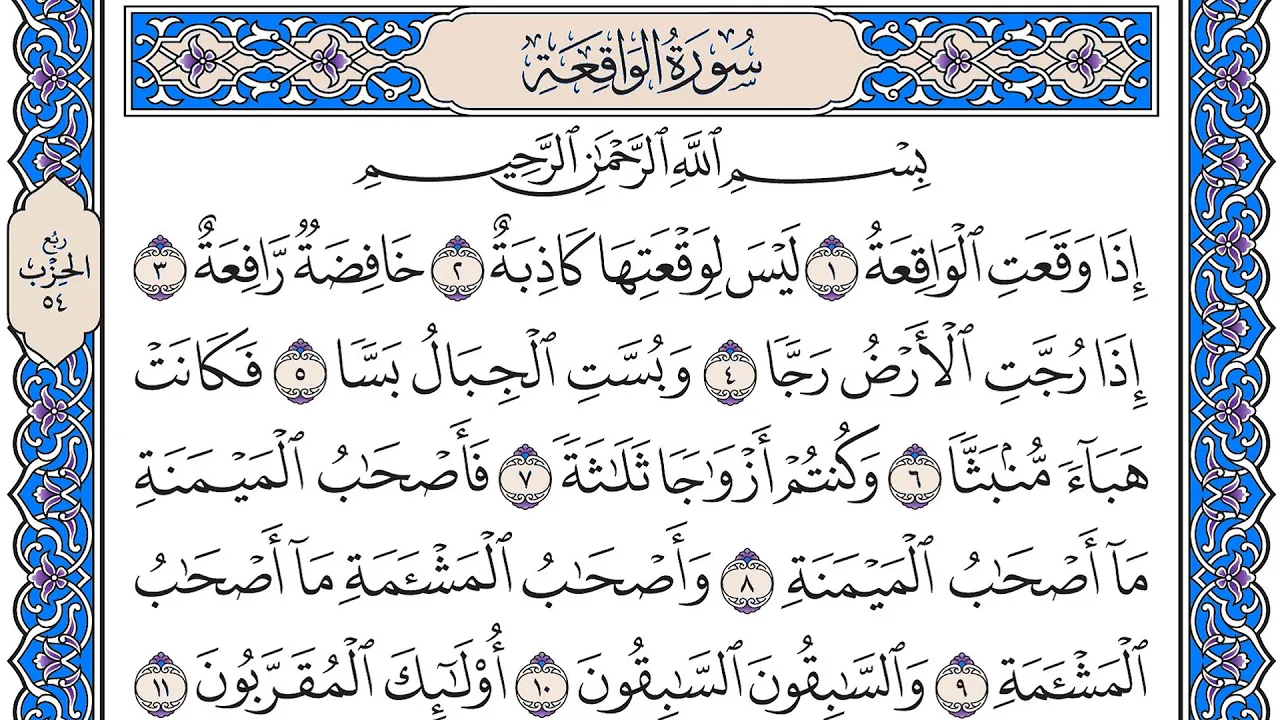 سُورَةُ الوَاقِعَةِ
بِسۡمِ ٱللَّهِ ٱلرَّحۡمَٰنِ ٱلرَّحِيمِ
إِذَا وَقَعَتِ ٱلۡوَاقِعَةُ ١ لَيۡسَ لِوَقۡعَتِهَا كَاذِبَةٌ ٢ خَافِضَةٞ رَّافِعَةٌ ٣
إِذَا رُجَّتِ ٱلۡأَرۡضُ رَجّٗا ٤ وَبُسَّتِ ٱلۡجِبَالُ بَسّٗا ٥ فَكَانَتۡ
هَبَآءٗ مُّنۢبَثّٗا ٦ وَكُنتُمۡ أَزۡوَٰجٗا ثَلَٰثَةٗ ٧ فَأَصۡحَٰبُ ٱلۡمَيۡمَنَةِ
مَآ أَصۡحَٰبُ ٱلۡمَيۡمَنَةِ ٨ وَأَصۡحَٰبُ ٱلۡمَشۡـَٔمَةِ مَآ أَصۡحَٰبُ
ٱلۡمَشۡـَٔمَةِ ٩ وَٱلسَّٰبِقُونَ ٱلسَّٰبِقُونَ ١٠ أُوْلَٰٓئِكَ ٱلۡمُقَرَّبُونَ ١١
رُبُع
الحِزْب
٥٤